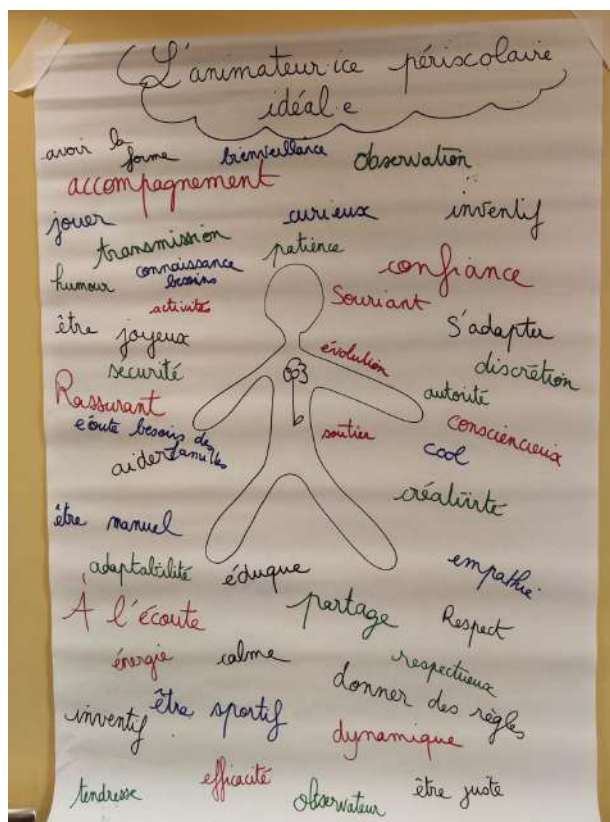 L'animateur·ice périscolaire
idéal·e
avoir la forme
bienveillance
observation
accompagnement
jouer
curieux
inventif
transmission
patience
humour
connaissance besoins
confiance
activité
Souriant
être joyeux
S'adapter
évolution
sécurité
discrétion
Rassurant
autorité
écoute besoins des familles
soutien
consciencieux
aider
cool
créativité
être manuel
adaptabilité
éduque
empathie
À l'écoute
partage
Respect
énergie
calme
respectueux
donner des règles
inventif
être sportif
dynamique
tendresse
efficacité
observateur
être juste